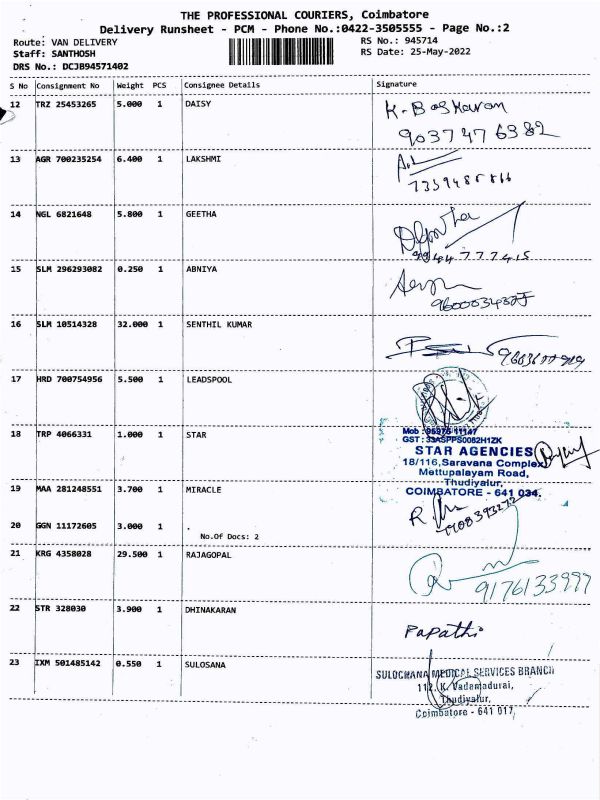 THE PROFESSIONAL COURIERS, Coimbatore
Delivery Runsheet - PCM - Phone No.:0422-3505555 - Page No.:2
Route: VAN DELIVERY RS No.: 945714
Staff: SANTHOSH RS Date: 25-May-2022
DRS No.: DCJB94571402
S No Consignment No Weight PCS Consignee Details Signature
12 TRZ 25453265 5.000 1 DAISY K. Baskaran
9037476382
13 AGR 700235254 6.400 1 LAKSHMI
14 NGL 6821648 5.800 1 GEETHA
9944777415
15 SLM 296293082 0.250 1 ABNIYA
16 SLM 10514328 32.000 1 SENTHIL KUMAR
17 HRD 700754956 5.500 1 LEADSPOOL
18 TRP 4066331 1.000 1 STAR
Mob : 95976 11147
GST : 33ASPPS0082H1ZK
STAR AGENCIES
18/116,Saravana Complex
Mettupalayam Road,
Thudiyalur,
COIMBATORE - 641 034.
19 MAA 281248551 3.700 1 MIRACLE
20 GGN 11172605 3.000 1 .
No.Of Docs: 2
21 KRG 4358028 29.500 1 RAJAGOPAL
9176133997
22 STR 328030 3.900 1 DHINAKARAN
Papathi
23 IXM 501485142 0.550 1 SULOSANA
SULOCHANA MEDICAL SERVICES BRANCH
112, K. Vadamadurai,
Thudiyalur,
Coimbatore - 641 017,